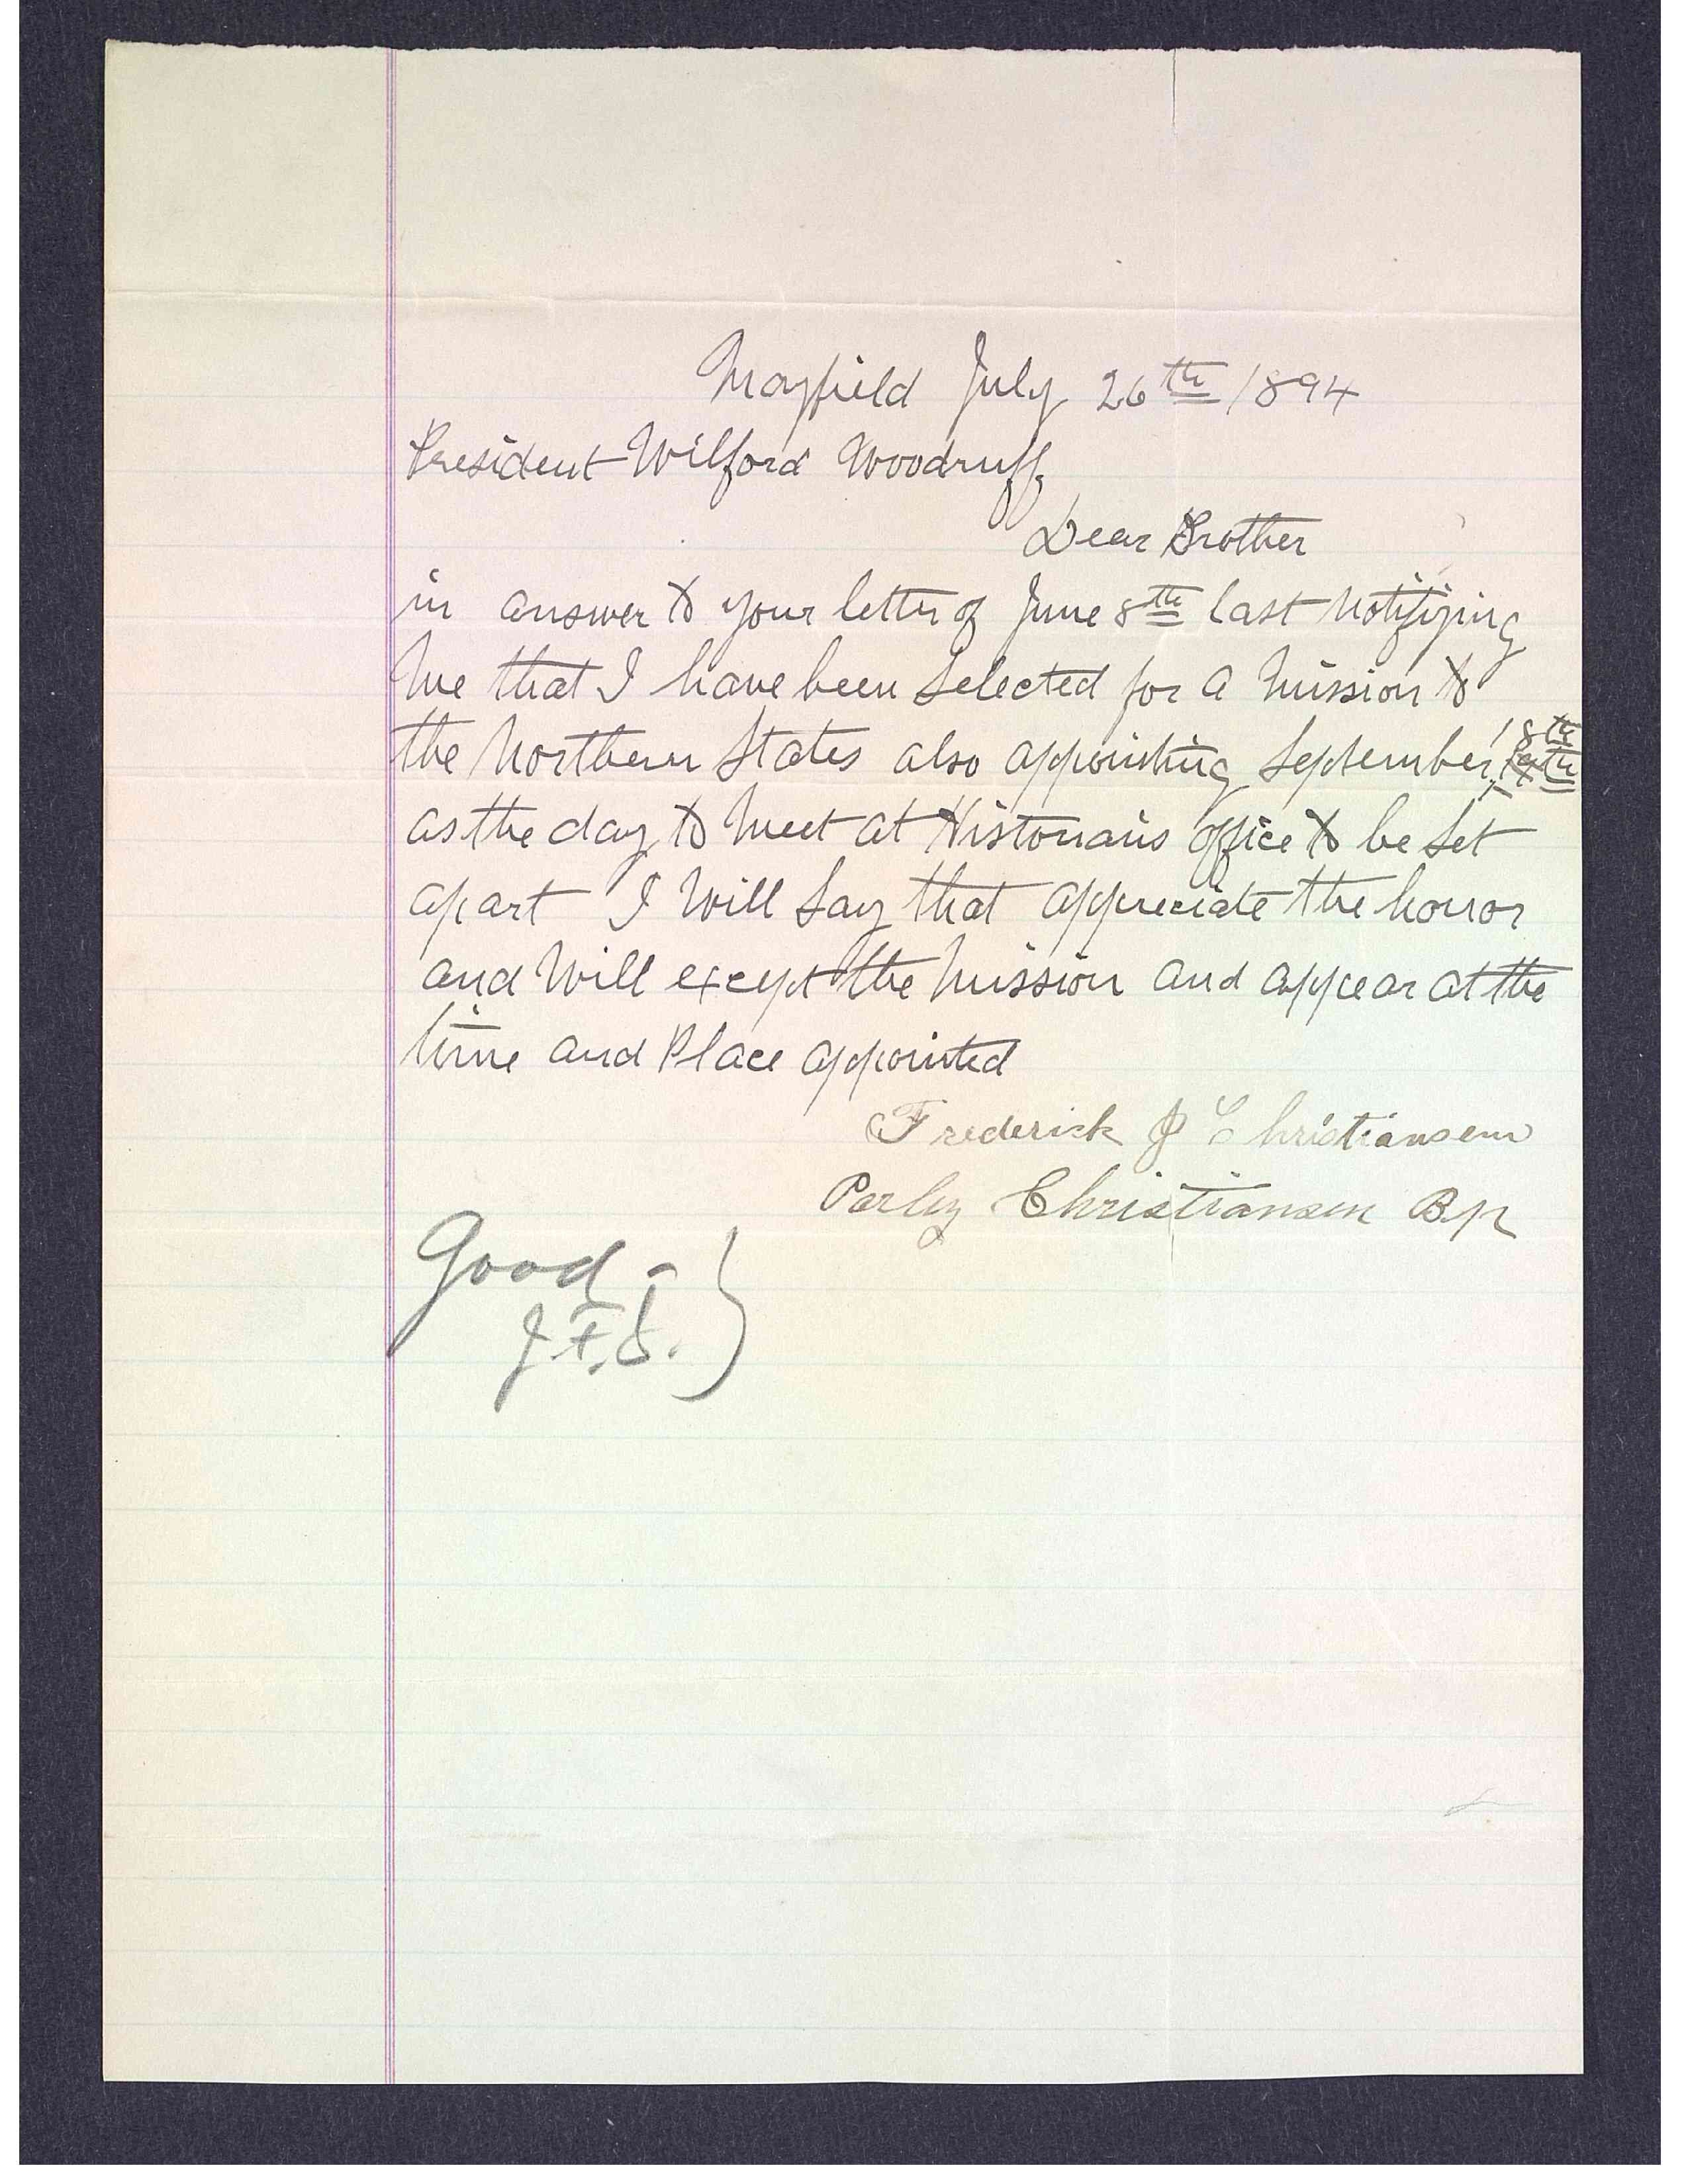 Mayfield July 26th 1894
President Wilford Woodruff
Dear Brother
in answer to your letter of June 8th last Notifying
Me that I have been Selected for a Mission to
the Northern States also appointing September 18th
as the day to Meet at Historians office to be Set
apart I Will Say that appreciate the honor
and Will except the Mission and appear at the
time and Place appointed
Frederick J Christiansen
Parley Christiansen Bp
Good -
J.F.S.